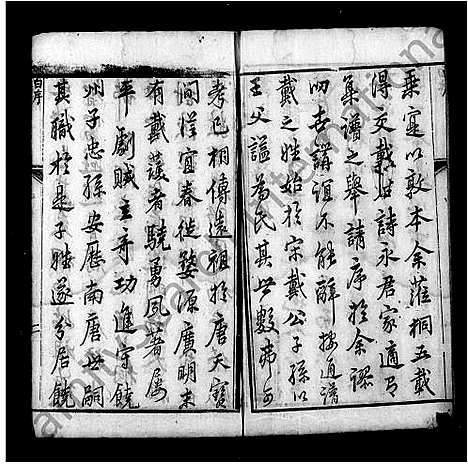 乘寔以敦本余蒞桐五載
得交戴母詩永君家適有
集譜之舉請序於余謬
叨世講誼不能辭按通譜
戴之姓始於宋戴公子孫以
王父謚為氏其世數弗可
考已相傳遠祖於唐天寶
間徙宜春徙婺源廣明末
有戴護者驍勇夙著屢
平劇賊立奇功進守饒
州子忠孫安歷南唐世嗣
其職於是子姓遂分居饒
自序
二